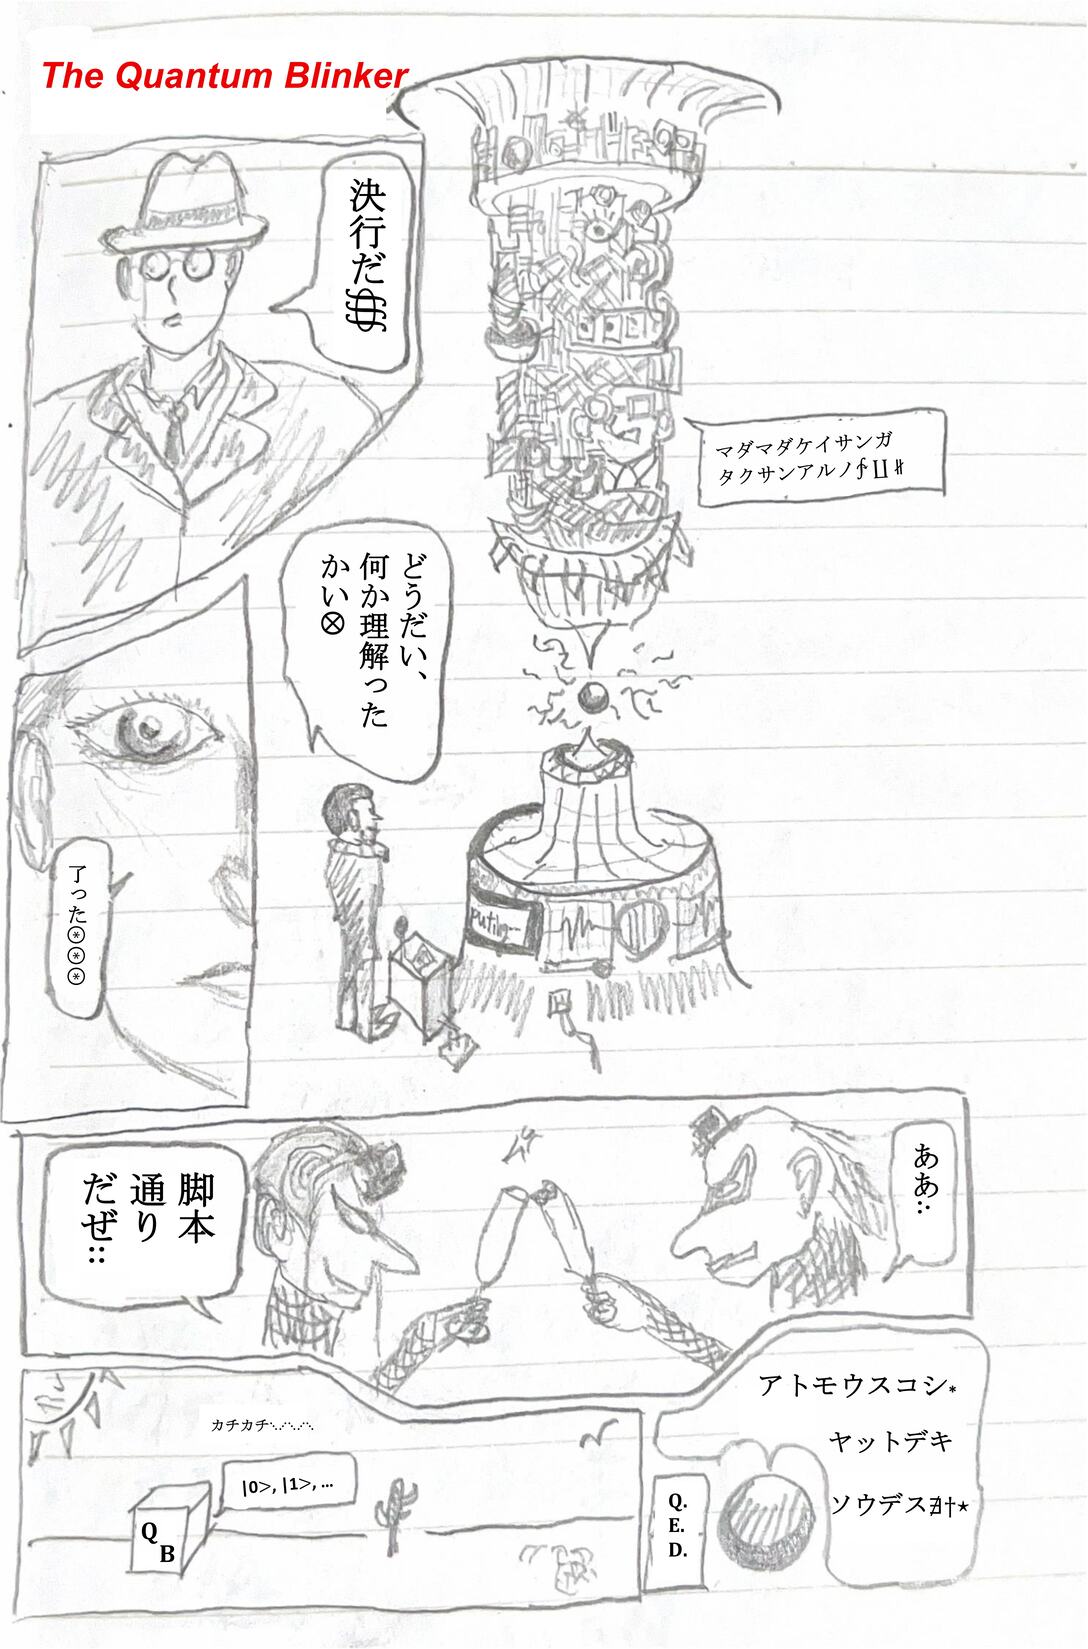 The Quantum Blinker
決行だ∯∯
マダマダケイサンガ
タクサンアルノ∱∐⧥
どうだい、
何か理解った
かい⊗
putihg--
了った⊛⊛⊛
脚本
通り
だぜ::
ああ:·
カチカチ⋱⋰⋱⋰⋱
|0>, |1>, ...
Q
B
アトモウスコシ*
ヤットデキ
ソウデス∄†⋆
Q.
E.
D.